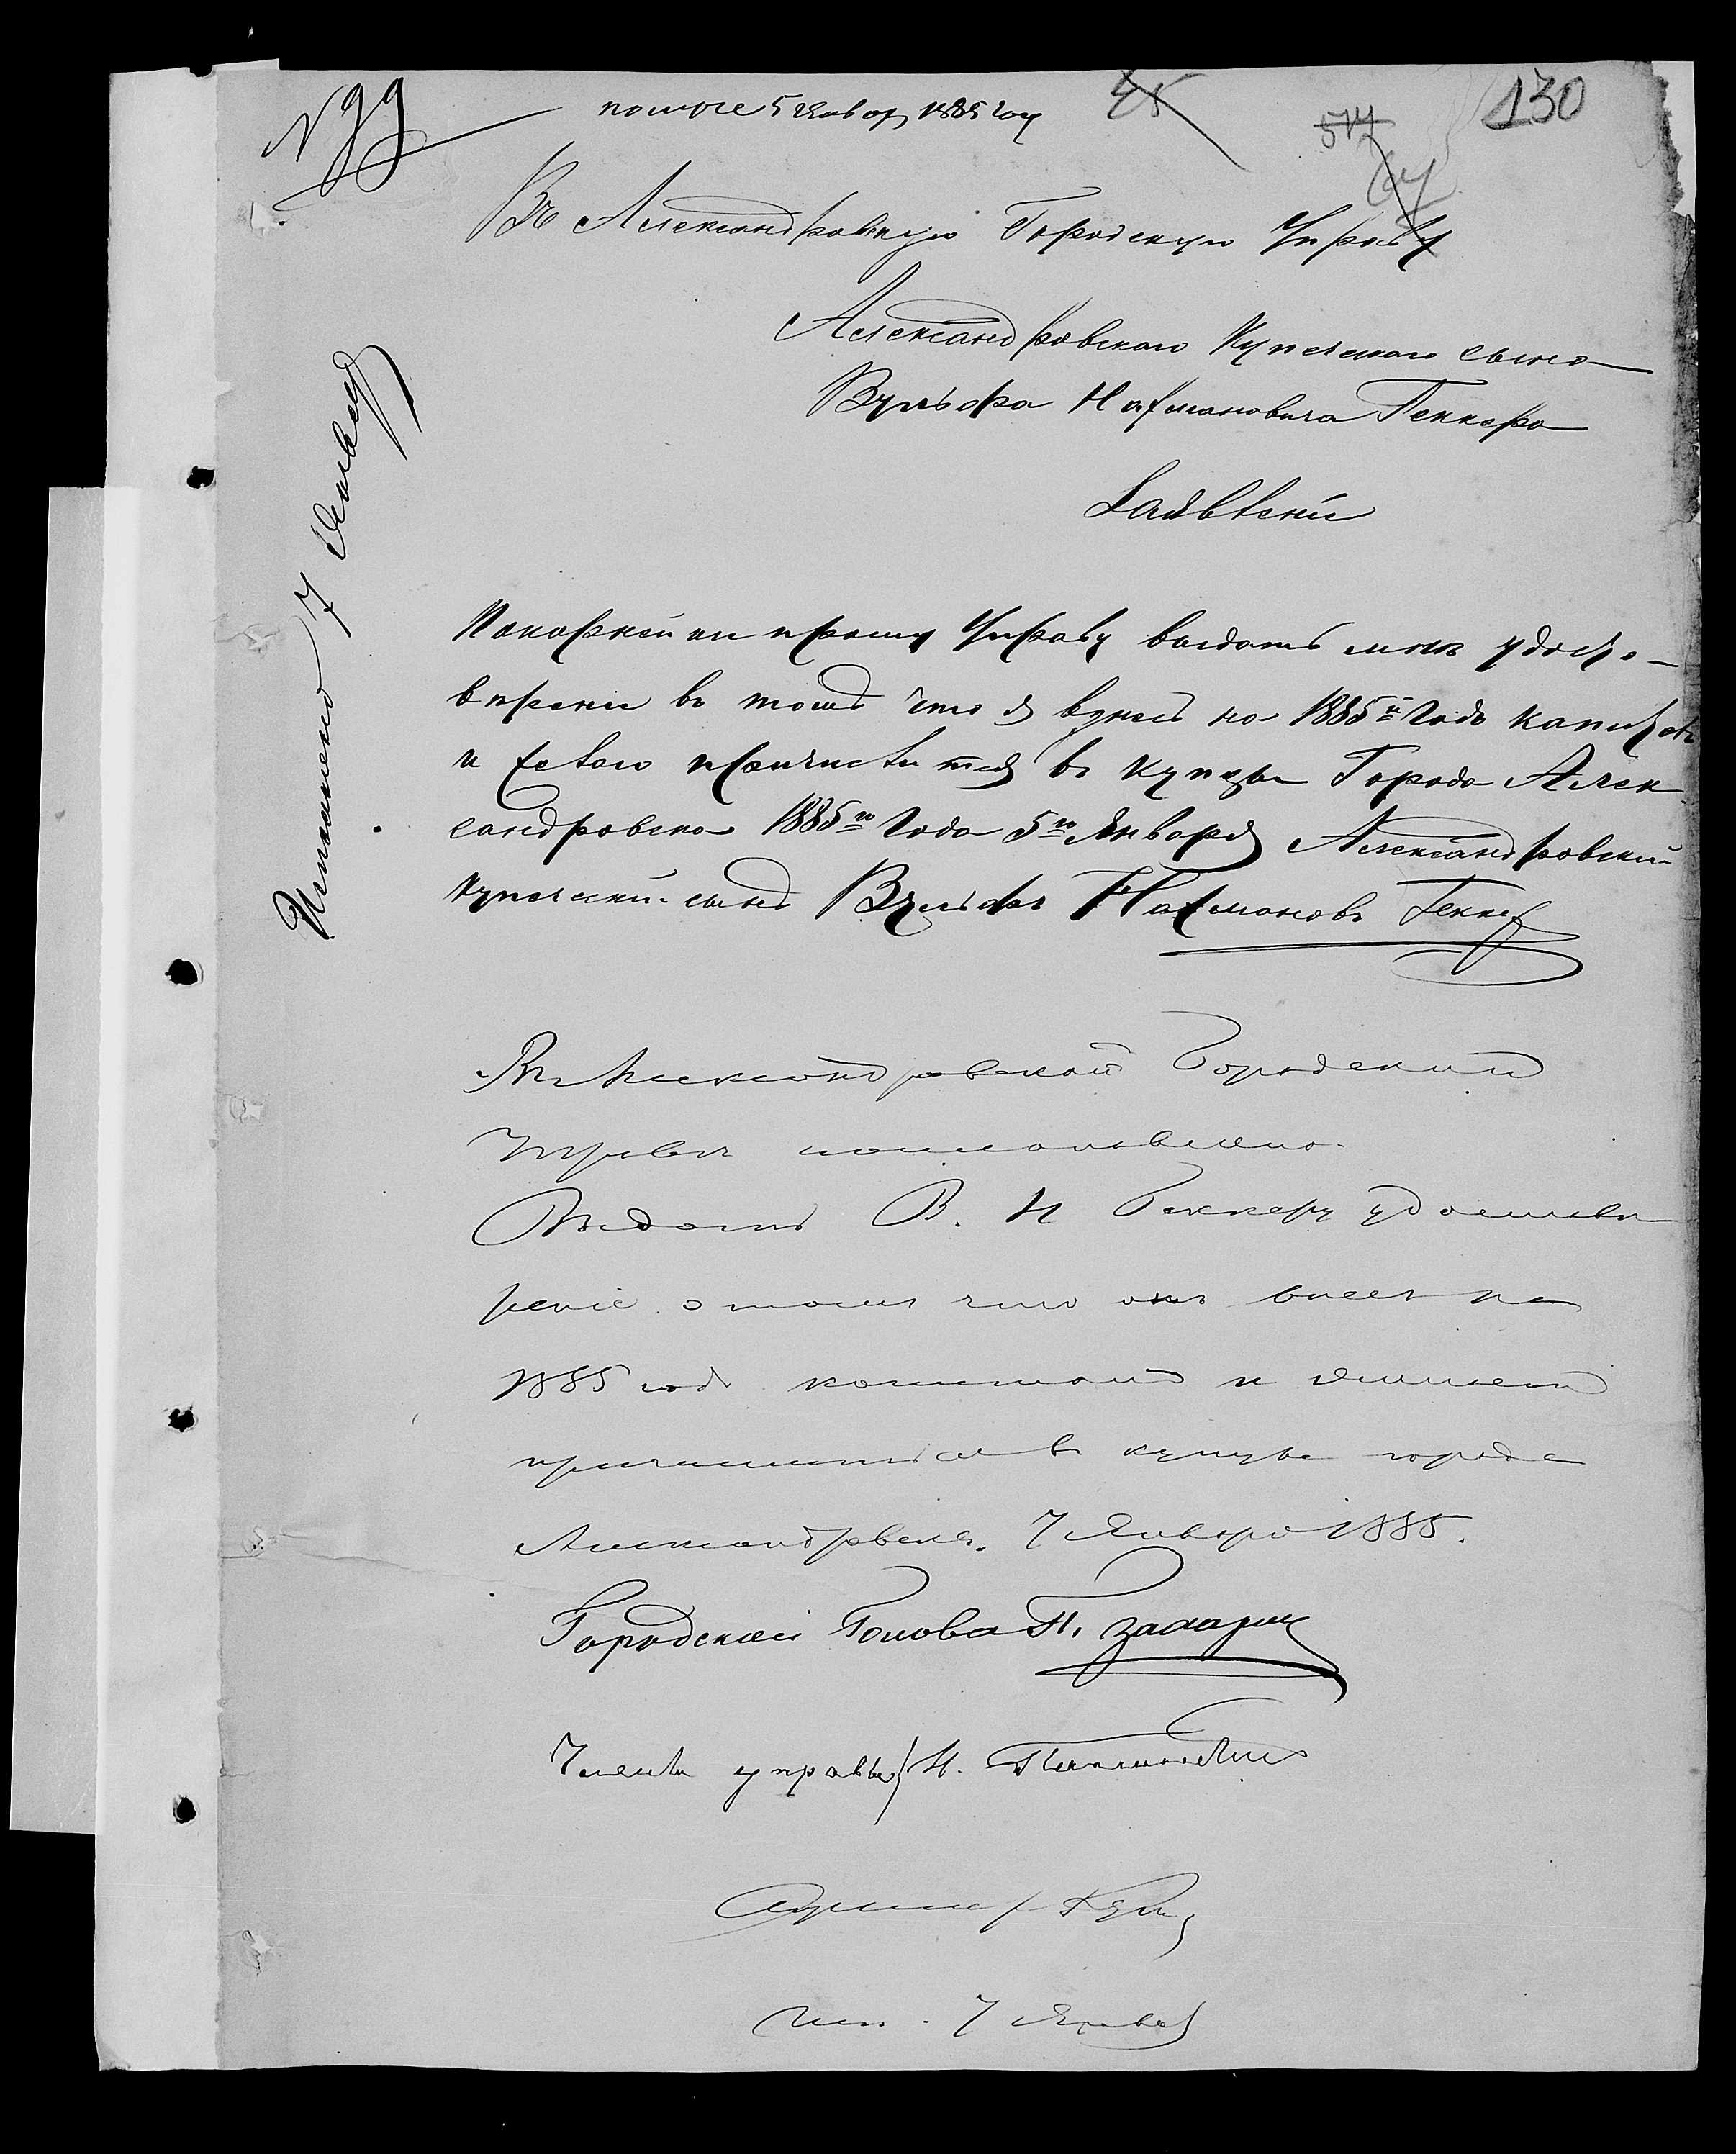 № 99
получе 5 Январ 1885 году
25
574
64
130
Въ Александровскую Городскую Управу
Александровского Купеческого сына
Вульфа Нахмановича Геккера
Заявленіе
Покорнейши прошу Управу выдать мнѣ удосто-
вѣреніе въ томъ что я внесъ на 1885й Годъ капиталъ
и причислится въ купцы Города Алек
сандровска 1885го Года 5го Января Александровскій
купеческій сынъ Вульфъ Нахмановъ Геккер
Исполнено 7 Января
Въ Александровской Городской
Управѣ постановлено.
Выдать В. Н Геккеру удостовѣ
реніе о томъ что онъ внесъ на
1885 годъ капиталъ и желаетъ
причислиться въ купцы города
Александровска. 7 Января 1885.
Городской Голова П. Захарин
Члены управы Н.
Исп. 7 Январ